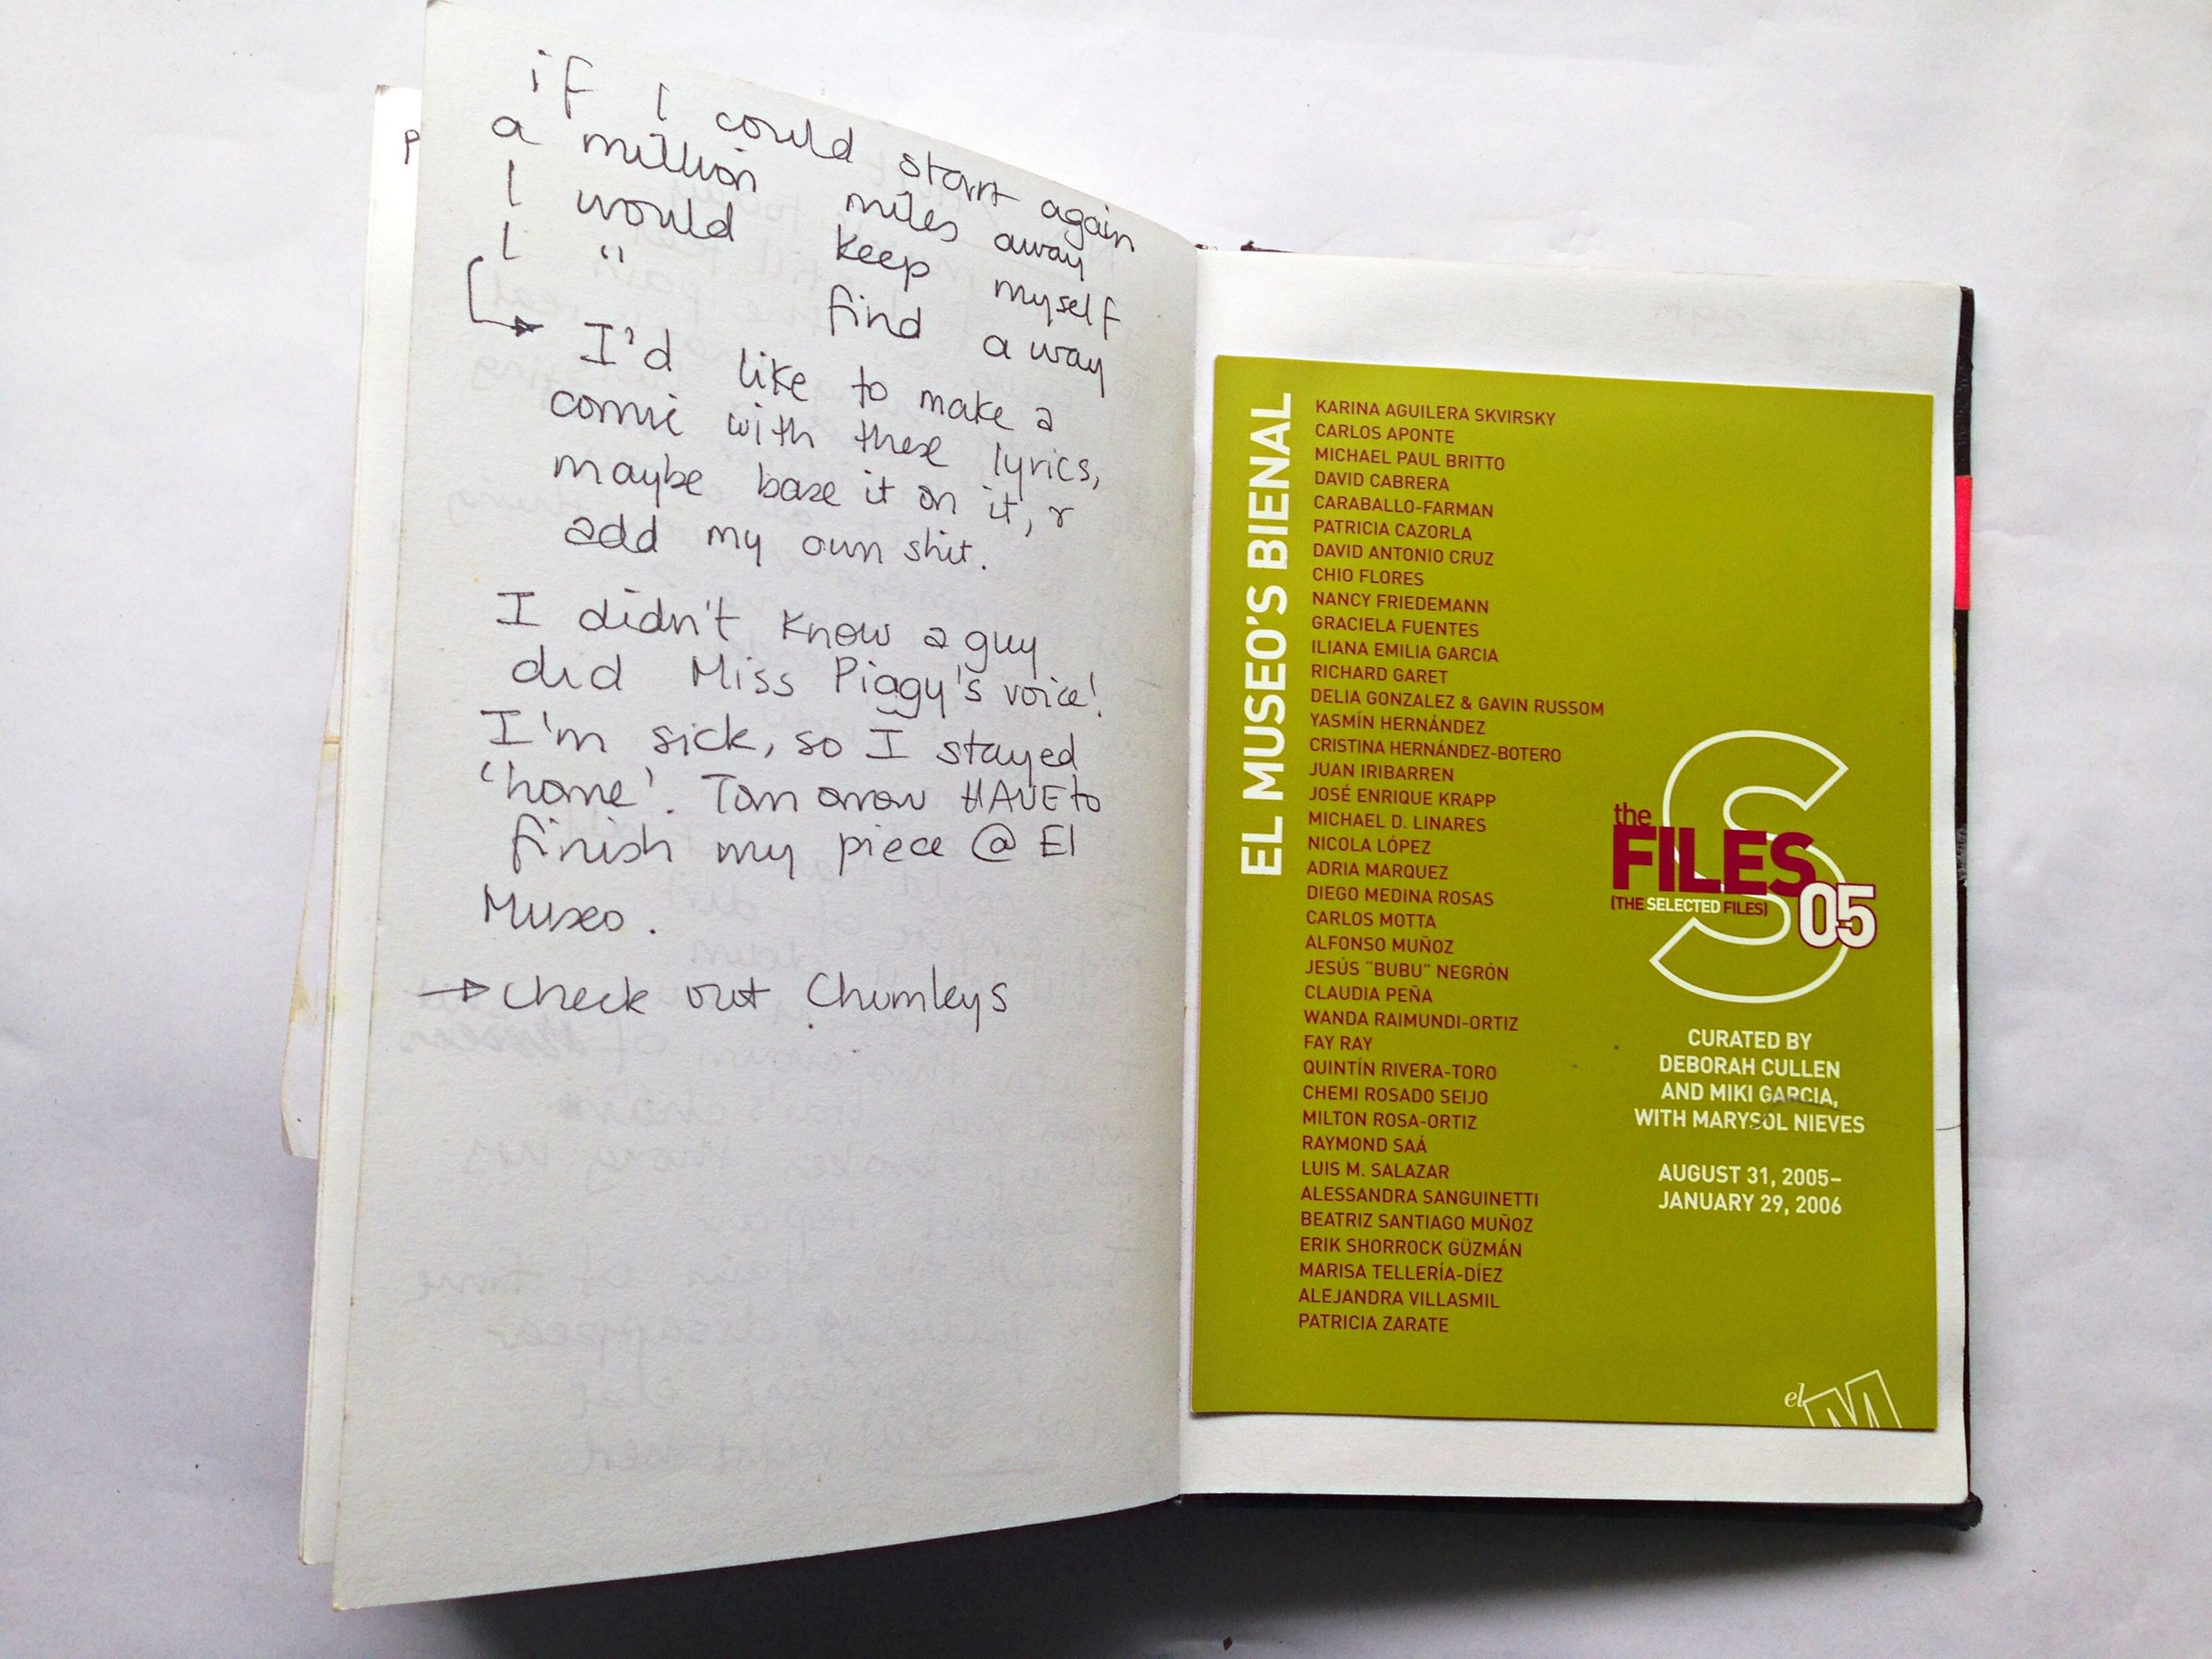 P
if I could start again
a million miles away
I would keep myself
I " find a way
I'd like to make a
comic with these lyrics,
maybe base it on it, r
add my own shit.
I didn't know a guy
did Miss Piggy's voice!
I'm sick, so I stayed
'home'. Tomorrow HAVE to
finish my piece @ El
Museo.
→ check out Chumleys
EL MUSEO'S BIENAL
KARINA AGUILERA SKVIRSKY
CARLOS APONTE
MICHAEL PAUL BRITTO
DAVID CABRERA
CARABALLO-FARMAN
PATRICIA CAZORLA
DAVID ANTONIO CRUZ
CHIO FLORES
NANCY FRIEDEMANN
GRACIELA FUENTES
ILIANA EMILIA GARCIA
RICHARD GARET
DELIA GONZALEZ & GAVIN RUSSOM
YASMÍN HERNÁNDEZ
CRISTINA HERNÁNDEZ-BOTERO
JUAN IRIBARREN
JOSÉ ENRIQUE KRAPP
MICHAEL D. LINARES
NICOLA LÓPEZ
ADRIA MARQUEZ
DIEGO MEDINA ROSAS
CARLOS MOTTA
ALFONSO MUÑOZ
JESÚS "BUBU" NEGRÓN
CLAUDIA PEÑA
WANDA RAIMUNDI-ORTIZ
FAY RAY
QUINTÍN RIVERA-TORO
CHEMI ROSADO SEIJO
MILTON ROSA-ORTIZ
RAYMOND SAÁ
LUIS M. SALAZAR
ALESSANDRA SANGUINETTI
BEATRIZ SANTIAGO MUÑOZ
ERIK SHORROCK GÜZMÁN
MARISA TELLERÍA-DÍEZ
ALEJANDRA VILLASMIL
PATRICIA ZARATE
S
the
FILES
(THE SELECTED FILES)
05
CURATED BY
DEBORAH CULLEN
AND MIKI GARCIA,
WITH MARYSOL NIEVES
AUGUST 31, 2005–
JANUARY 29, 2006
el M